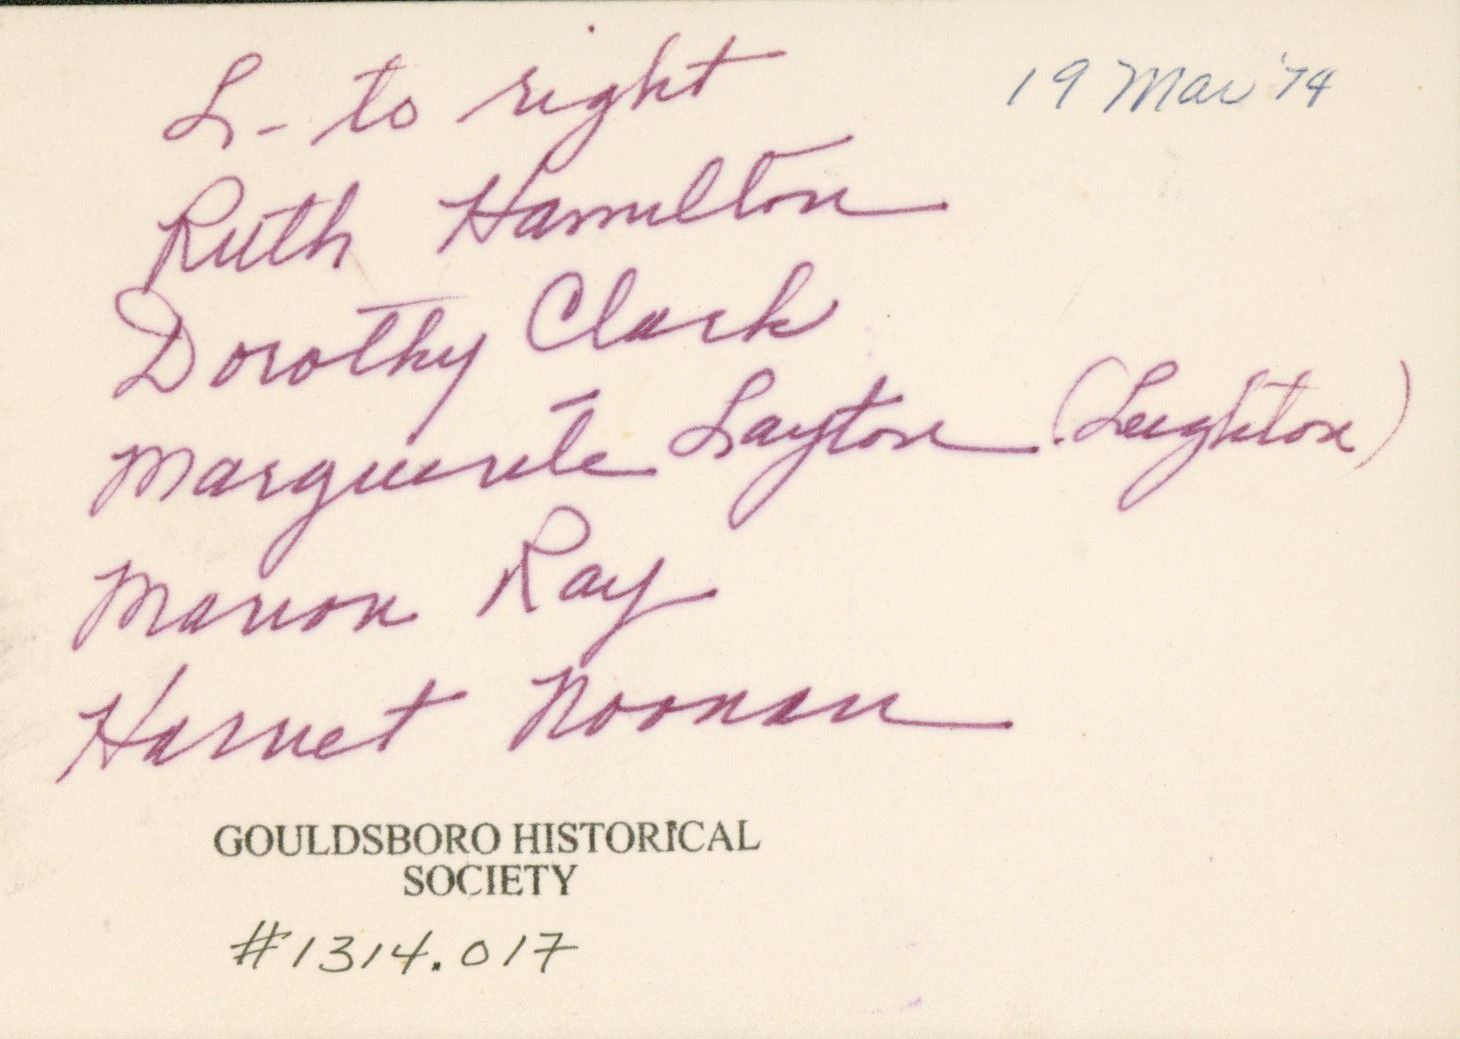 L - to right
19 Mar '74
Ruth Hamilton
Dorothy Clark
Marguerite Layton (Leighton)
Marion Ray
Harriet Noonan
GOULDSBORO HISTORICAL
SOCIETY
#1314.017